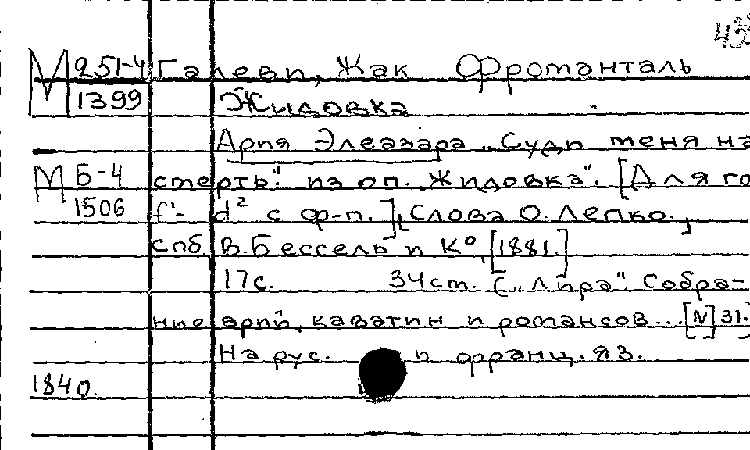 М 251-4 Галеви, Жак Фроманталь
1399 Жидовка
Ария Элеазара „Суди меня на
М Б-4 смерть" из оп. „Жидовка". [Для го
1506 f'- d² с ф-п.], Слова О. Лепко.,
спб, В. Бессель и К°, [1881.]
17с. 34см. („Лира". Собра-
ние арий, каватин и романсов... [N 31.
На рус. и франц. яз.
1840